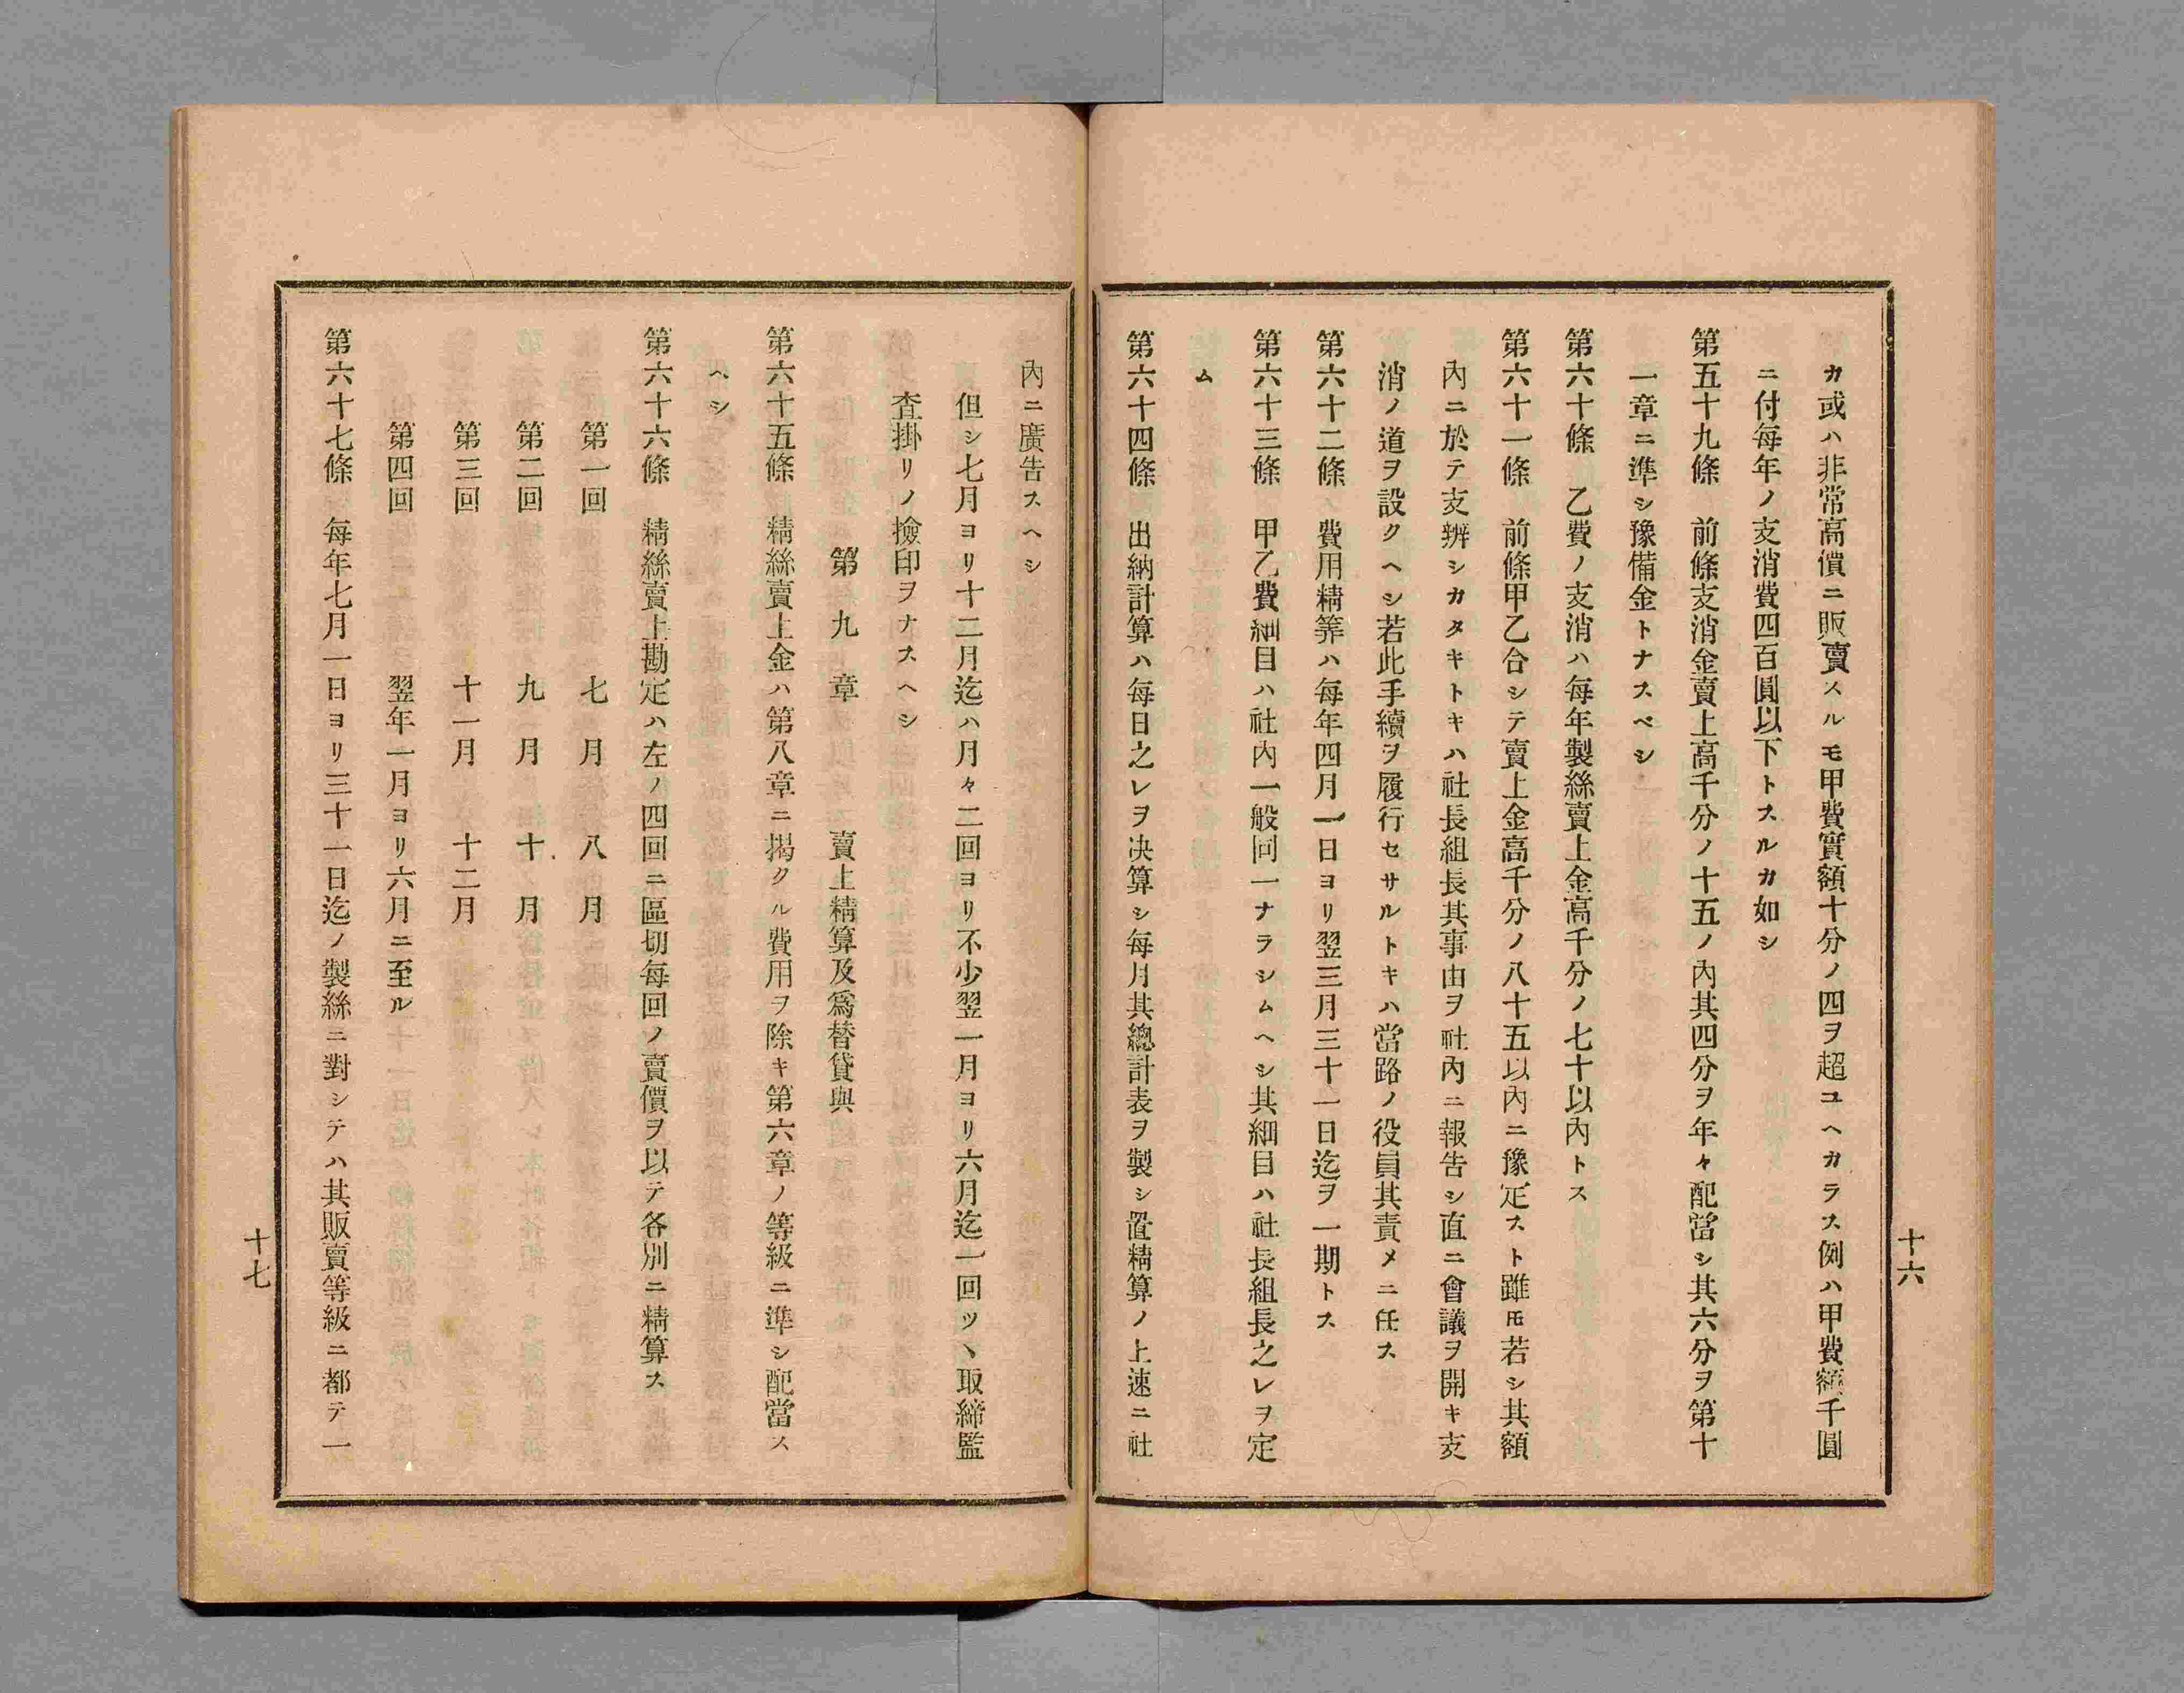 カ或ハ非常高價ニ販賣スルモ甲費實額十分ノ四ヲ超ユヘカラス例ハ甲費額千圓
ニ付每年ノ支消費四百圓以下トスルカ如シ
第五十九條　前條支消金賣上高千分ノ十五ノ內其四分ヲ年々配當シ其六分ヲ第十
一章ニ準シ豫備金トナスベシ
第六十條　乙費ノ支消ハ每年製絲賣上金高千分ノ七十以內トス
第六十一條　前條甲乙合シテ賣上金高千分ノ八十五以內ニ豫定スト雖𪜈若シ其額
內ニ於テ支辨シカタキトキハ社長組長其事由ヲ社內ニ報告シ直ニ會議ヲ開キ支
消ノ道ヲ設クヘシ若此手續ヲ履行セサルトキハ當路ノ役員其責メニ任ス
第六十二條　費用精筭ハ每年四月一日ヨリ翌三月三十一日迄ヲ一期トス
第六十三條　甲乙費細目ハ社內一般同一ナラシムヘシ其細目ハ社長組長之レヲ定
ム
第六十四條　出納計算ハ每日之レヲ決算シ每月其總計表ヲ製シ置精算ノ上速ニ社
十六
內ニ廣告スヘシ
但シ七月ヨリ十二月迄ハ月々二回ヨリ不少翌一月ヨリ六月迄一回ツヽ取締監
査掛リノ撿印ヲナスヘシ
第九章　賣上精算及爲替貸與
第六十五條　精絲賣上金ハ第八章ニ揭クル費用ヲ除キ第六章ノ等級ニ準シ配當ス
ヘシ
第六十六條　精絲賣上勘定ハ左ノ四回ニ區切每回ノ賣價ヲ以テ各別ニ精算ス
第一回　七月　八月
第二回　九月　十月
第三回　十一月　十二月
第四回　翌年一月ヨリ六月ニ至ル
第六十七條　每年七月一日ヨリ三十一日迄ノ製絲ニ對シテハ其販賣等級ニ都テ一
十七